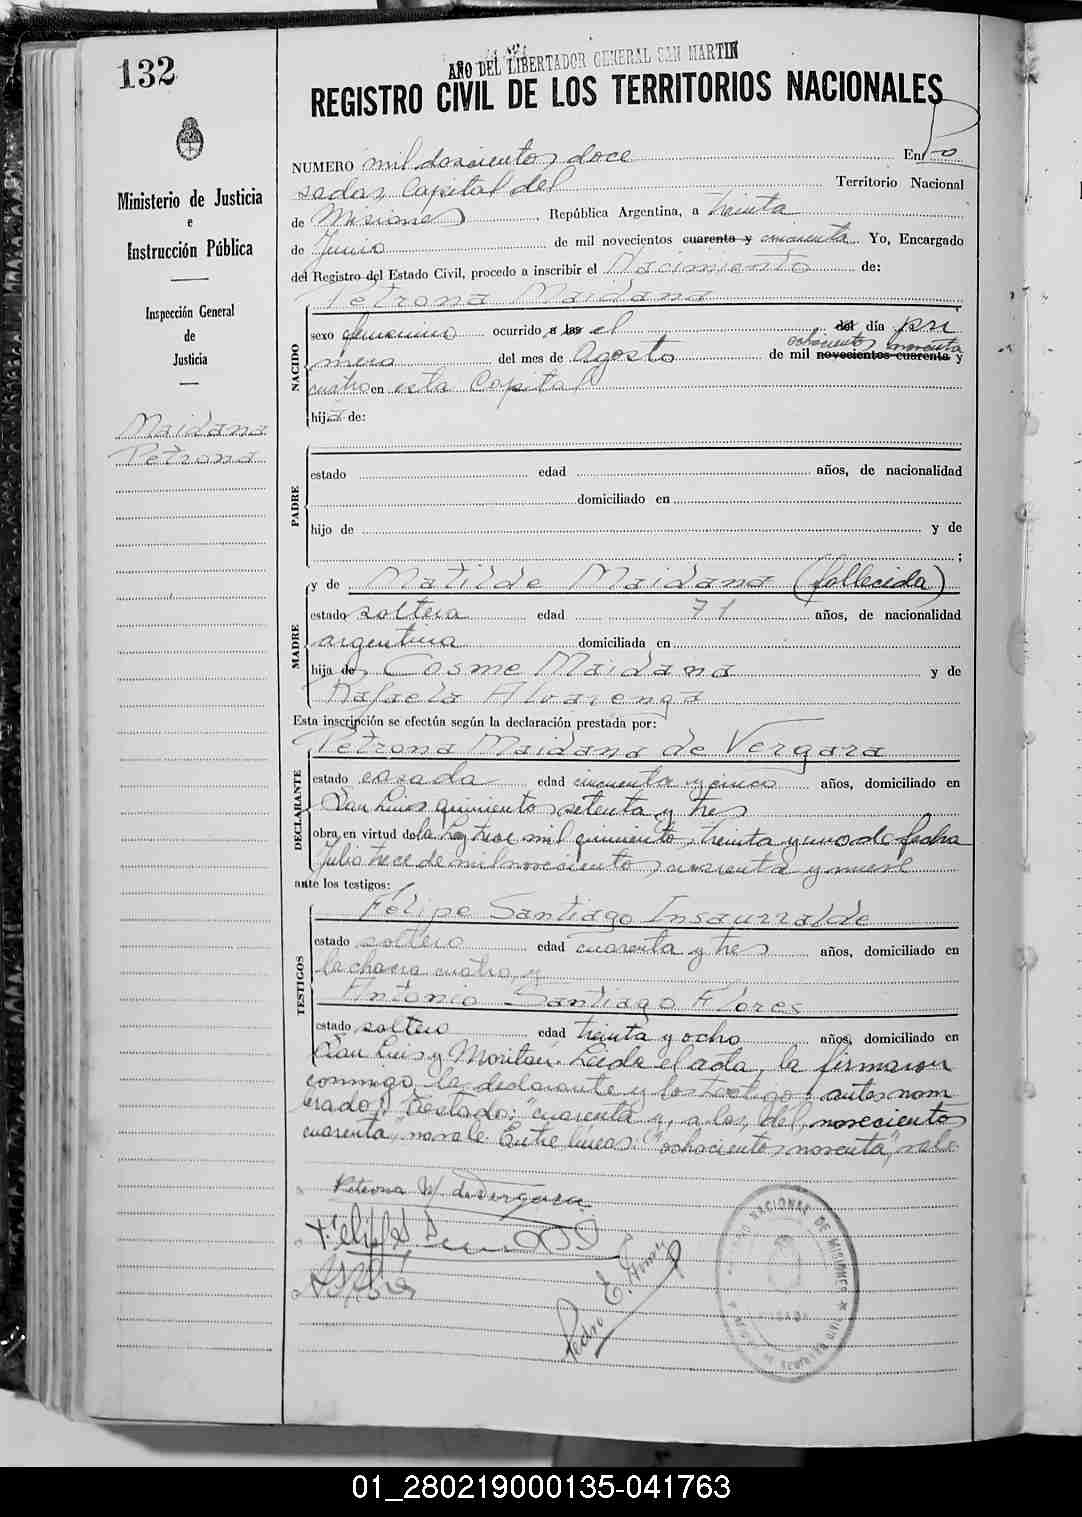 132
AÑO DEL LIBERTADOR GENERAL SAN MARTIN
REGISTRO CIVIL DE LOS TERRITORIOS NACIONALES
Ministerio de Justicia
e
Instrucción Pública
Inspección General
de
Justicia
Maidana
Petrona
NUMERO mil doscientos doce En Po
sadas, Capital del Territorio Nacional
de Misiones República Argentina, a treinta
de Junio de mil novecientos cuarenta y cincuenta Yo, Encargado
del Registro del Estado Civil, procedo a inscribir el Nacimiento de:
Petrona Maidana
NACIDO
sexo femenino ocurrido a las el del día pri
ochocientos noventa
mero del mes de Agosto de mil novecientos cuarenta y
cuatro en esta Capital
hija de:
PADRE
estado edad años, de nacionalidad
domiciliado en
hijo de y de
;
MADRE
y de Matilde Maidana (fallecida)
estado soltera edad 71 años, de nacionalidad
argentina domiciliada en
hija de Cosme Maidana y de
Rafaela Alvarenga
Esta inscripción se efectúa según la declaración prestada por:
DECLARANTE
Petrona Maidana de Vergara
estado casada edad cincuenta y cinco años, domiciliado en
San Luis quiniento setenta y tres
obra en virtud de la Ley trece mil quiniento treinta y uno de fecha
Julio trece de mil novecientos cuarenta y nueve
ante los testigos:
TESTIGOS
Felipe Santiago Insaurralde
estado soltero edad cuarenta y tres años, domiciliado en
la chacra cuatro, y
Antonio Santiago Flores
estado soltero edad treinta y ocho años, domiciliado en
San Luis y Moritán. Leida el acta, la firmaron
conmigo, la declarante y los testigos antes nom
brados. Testado: "cuarenta y, a las, del, novecientos
cuarenta," no vale. Entre líneas: "ochocientos noventa", vale.
Petrona M. de Vergara
Pedro E.
01_280219000135-041763